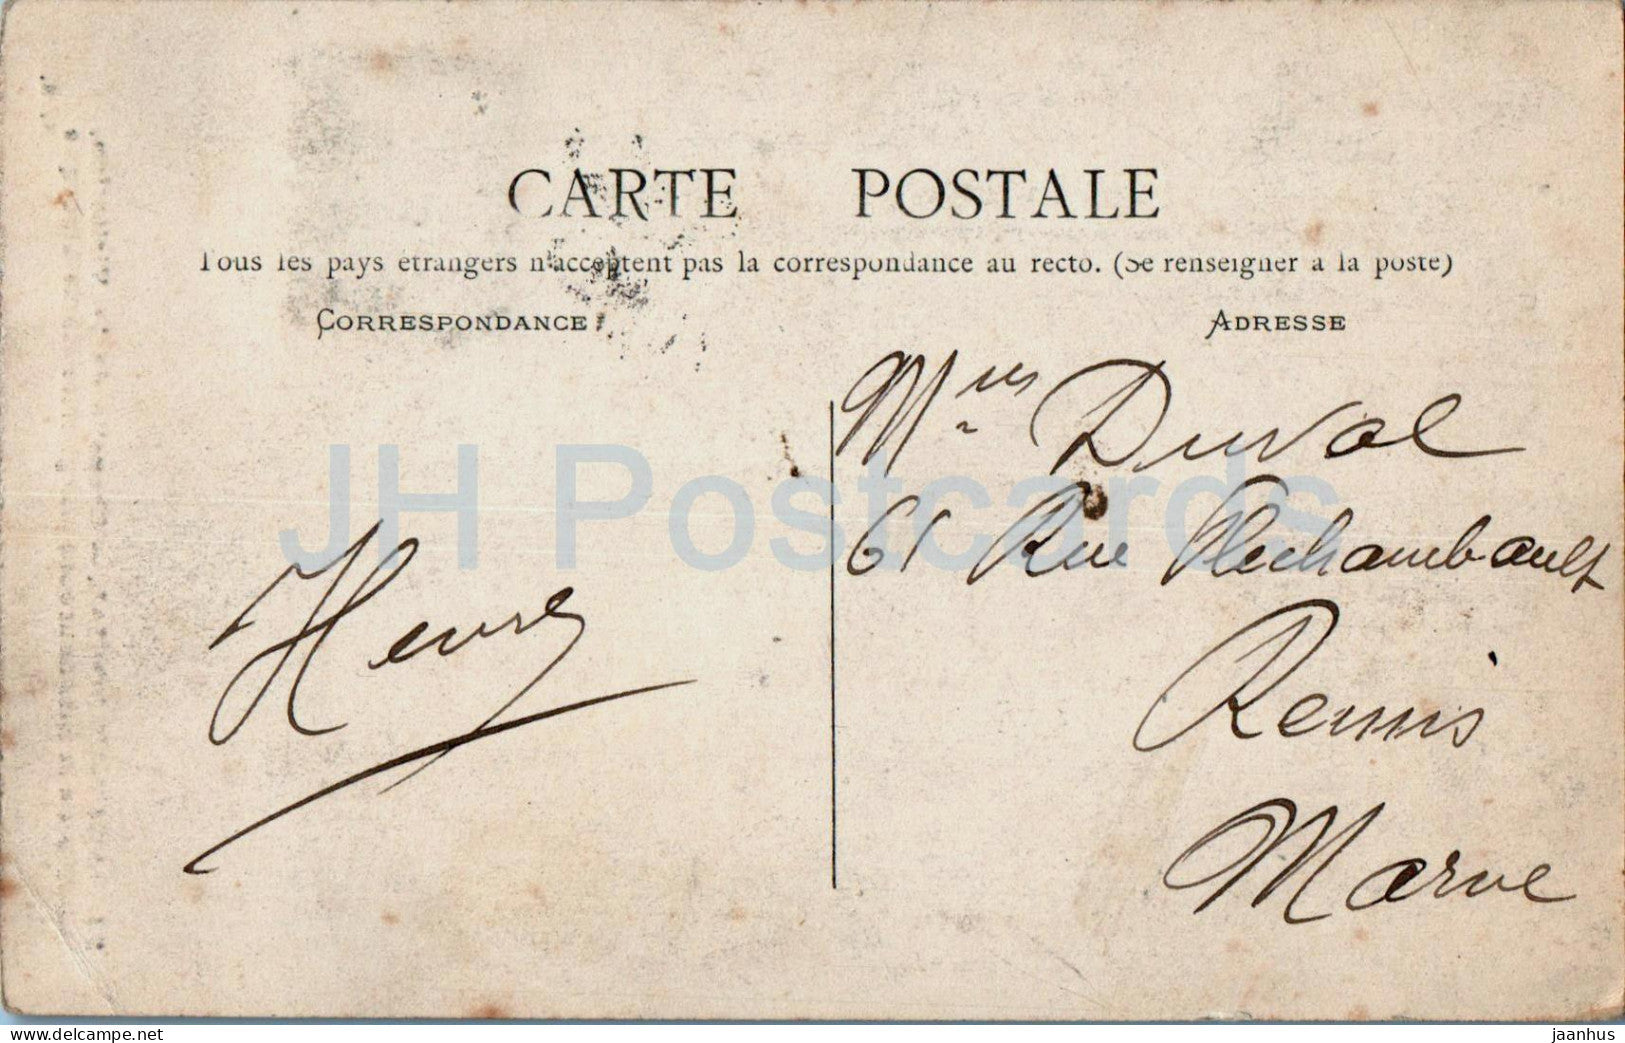 CARTE POSTALE
Tous les pays étrangers n'acceptent pas la correspondance au recto. (Se renseigner à la poste)
CORRESPONDANCE
ADRESSE
Duval
61 Rue Fléchambault
Reims
Marne
Henry
JH Postcards
www.delcampe.net
jaanhus